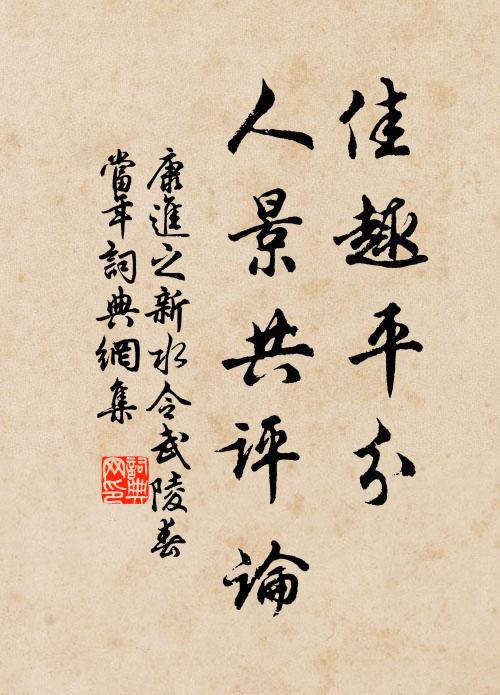 佳趣平分
人景共評論
康進之新水令武陵春
當年詞典網集
詞典網印